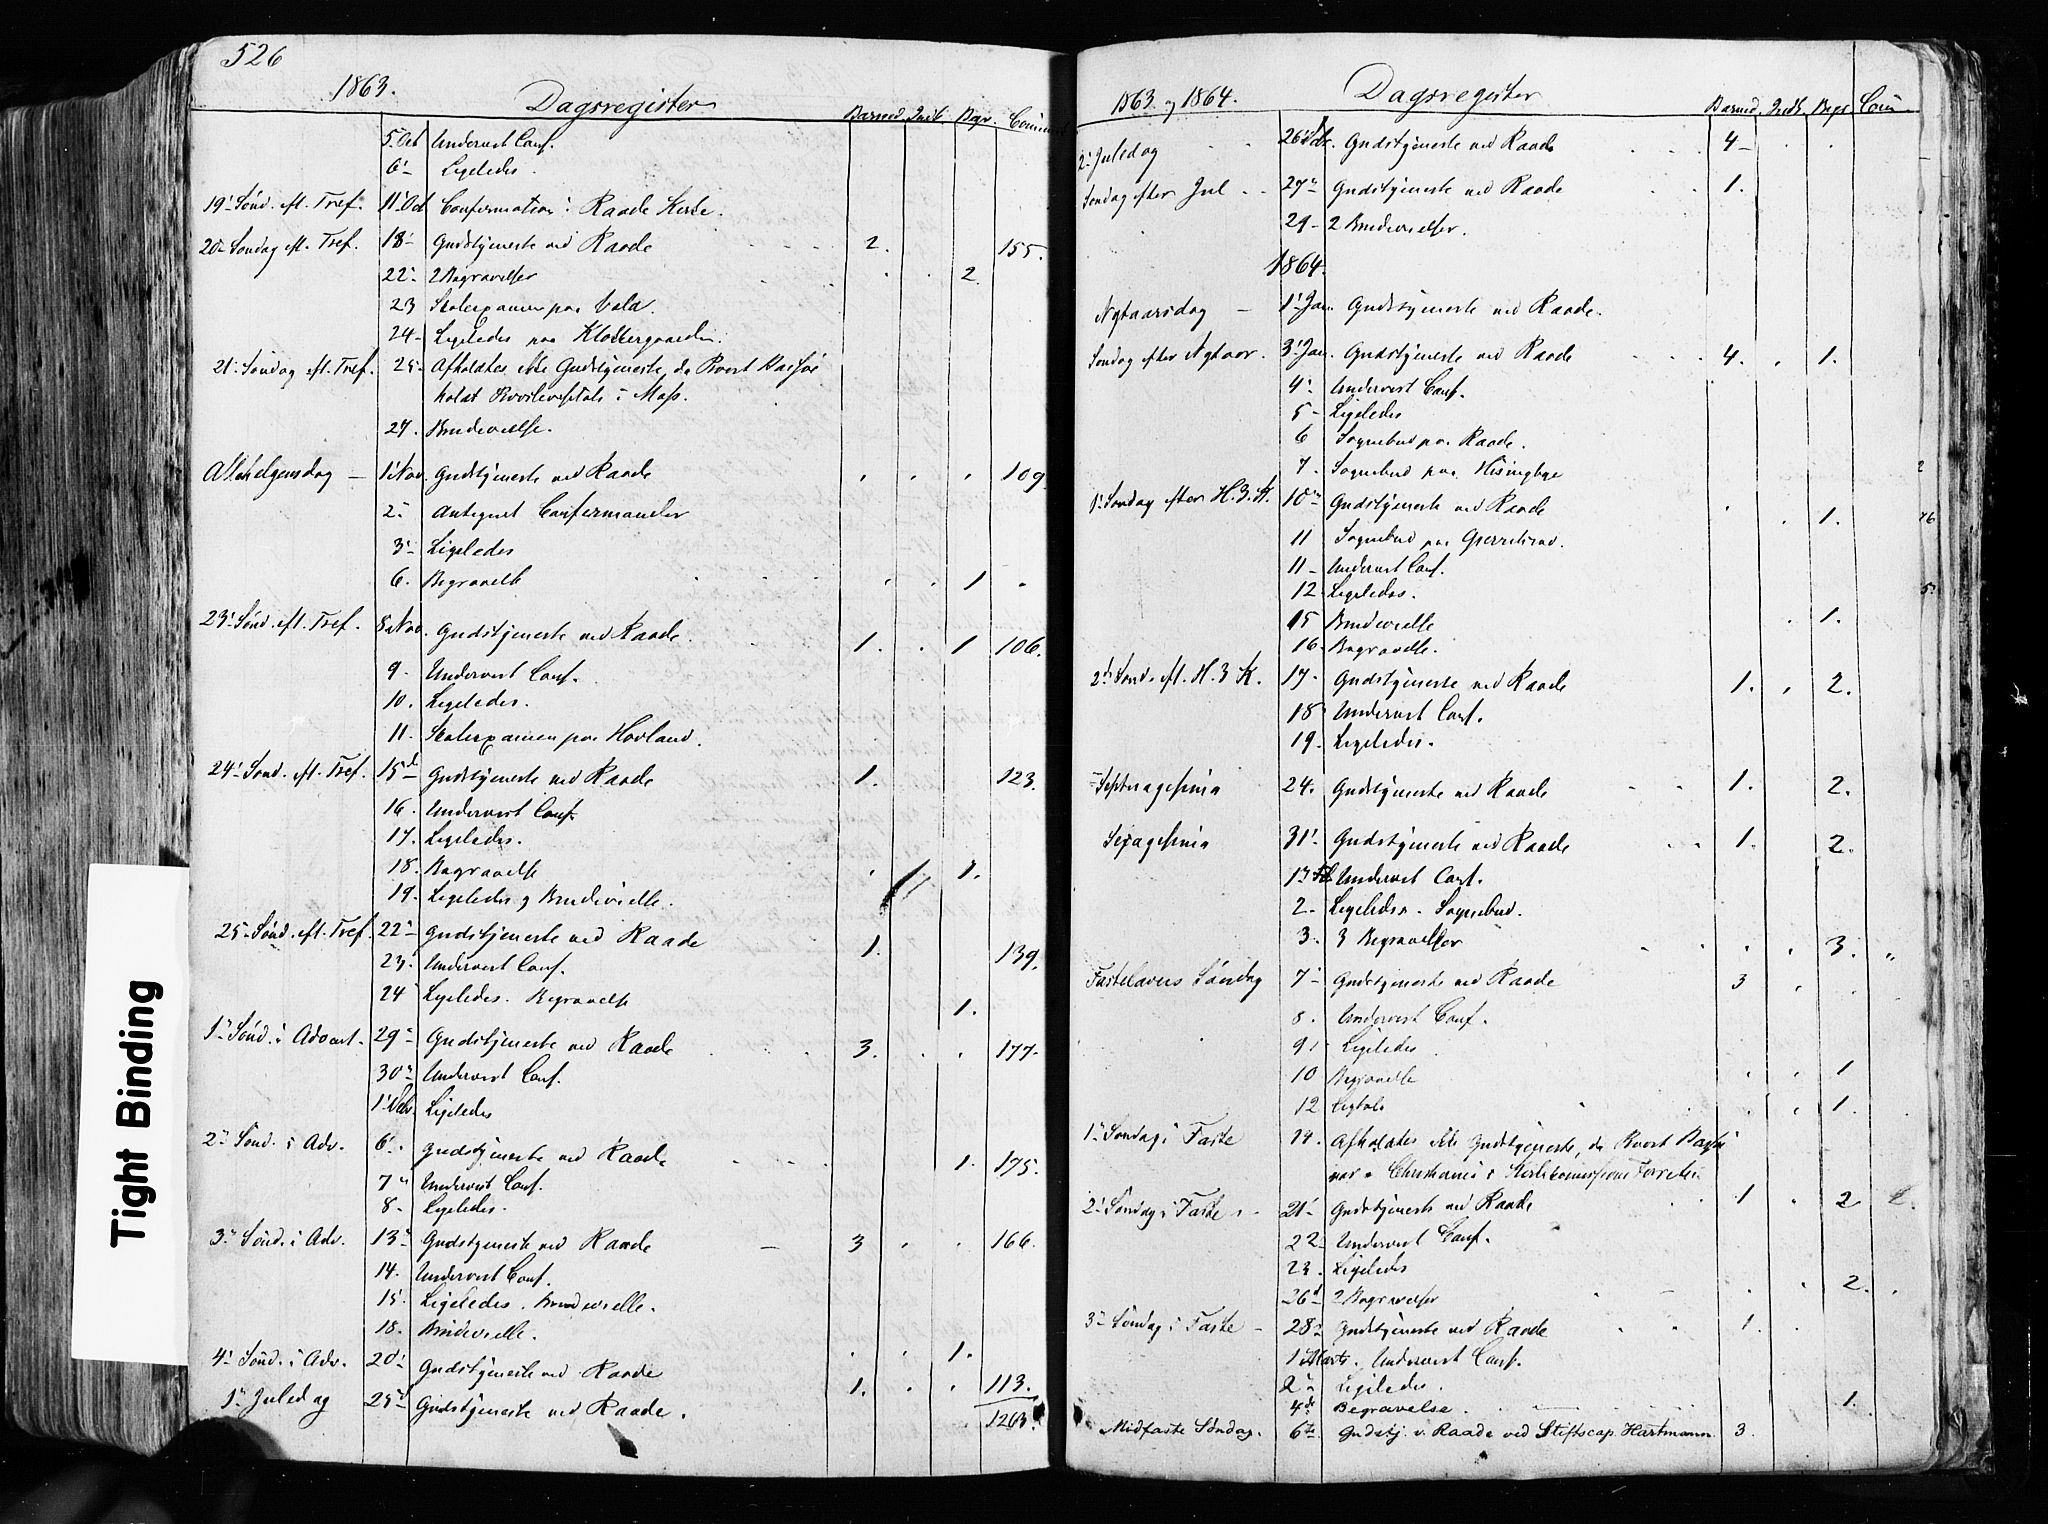 526
1863.
Dagsregister
Barned. Indt. Begr. Commun
5. Oct Undervist Conf.
6 Ligeledes.
19 Sønd. eft. Tref. 11 Oct Confirmation i Raade Kirke.
20 Søndag eft. Tref. 18 Gudstjeneste ved Raade 2. 155.
22 2 Begravelser 2.
23 Skoleexamen paa
24 Ligeledes paa Klostergaarden.
21 Søndag eft. Tref. 25 Afholdtes ikke Gudstjeneste, da Provst
holdt i Moss.
27. Brudevielse.
Allehelgensdag 1 Nov. Gudstjeneste ved Raade 109.
2 Antegnet Confirmander
3 Ligeledes
6. Begravelse 1
23 Sønd. eft. Tref. 8 Nov. Gudstjeneste ved Raade. 1. 1 106.
9. Undervist Conf.
10. Ligeledes.
11. Skoleexamen paa Hovland.
24 Sønd. eft. Tref. 15 Gudstjeneste ved Raade 1. 123.
16. Undervist Conf.
17. Ligeledes.
18. Begravelse 1.
19. Ligeledes og Brudevielse.
25 Sønd. eft. Tref. 22 Gudstjeneste ved Raade 1. 139.
23. Undervist Conf.
24 Ligeledes. Begravelse 1.
1 Sønd. i Advent 29 Gudstjeneste ved Raade 3. 177.
30 Undervist Conf.
1 Ligeledes
2 Sønd. i Adv. 6 Gudstjeneste ved Raade 1. 175.
7 Undervist Conf.
8 Ligeledes.
3 Sønd. i Adv. 13 Gudstjeneste ved Raade 3 166.
14. Undervist Conf.
15. Ligeledes. Brudevielse.
18. Brudevielse.
4 Sønd. i Adv. 20 Gudstjeneste ved Raade 1.
1 Juledag 25 Gudstjeneste ved Raade. 1. 113.
1263.
1863 og 1864.
Dagsregister
Barned. Indt. Begr. Com
2 Juledag 26 Gudstjeneste ved Raade 4
Søndag efter Jul 27 Gudstjeneste ved Raade 1.
29 2 Brudevielser.
1864.
Nytaarsdag 1 Jan Gudstjeneste ved Raade.
Søndag efter Nytaar. 3 Jan. Gudstjeneste ved Raade 4. 1.
4 Undervist Conf.
5 Ligeledes
6 Sognebud paa Raade.
7. Sognebud paa
1 Søndag efter H. 3. K. 10 Gudstjeneste ved Raade 1. 76
11 Sognebud paa
11 Undervist Conf.
12 Ligeledes.
15 Brudevielse 1.
16 Begravelse.
2 Sønd. eft. H. 3 K. 17. Gudstjeneste ved Raade 1. 2.
18 Undervist Conf.
19. Ligeledes.
Septuagesima 24. Gudstjeneste ved Raade 1. 2.
Sexagesima 31 Gudstjeneste ved Raade 1. 2.
1 Undervist Conf.
2. Ligeledes. Sognebud.
3. 3 Begravelser 3.
Fastelavns Søndag 7 Gudstjeneste ved Raade 3
8. Undervist Conf.
9 Ligeledes
10 Begravelse 1
12 1.
1 Søndag i Faste 14. Afholdtes ikke Gudstjeneste, da Provst
var i Christiania i
2 Søndag i Faste 21 Gudstjeneste ved Raade 1 2 2.
22 Undervist Conf.
23. Ligeledes
26 2 Begravelser 2.
3 Søndag i Faste 28 Gudstjeneste ved Raade 1.
1 Marts. Undervist Conf.
2 Ligeledes.
4de Begravelse. 1.
Midfaste Søndag. 6te Gudstj. v. Raade ved Stiftscap. Hartmann 3.
Tight Binding